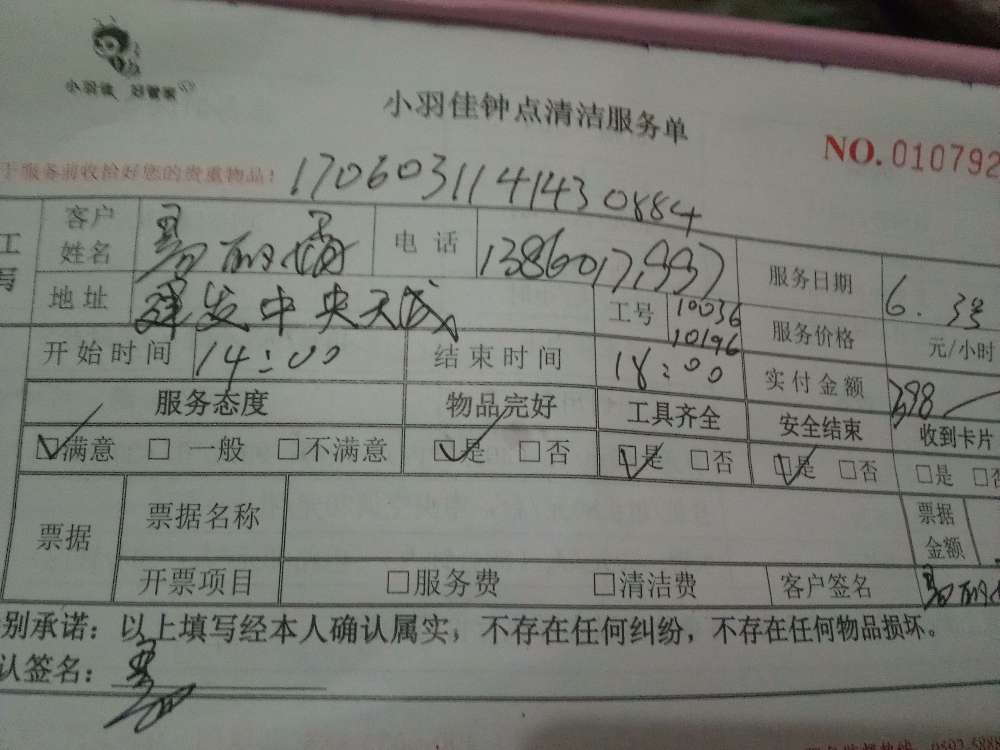 小羽佳 好管家
小羽佳钟点清洁服务单
NO. 010792
于服务前收拾好您的贵重物品!
170603114143 0884
工
写
客户姓名 易丽
电话
服务日期 6.3号
地址 建发中央天成
工号 10036 10196
服务价格 元/小时
开始时间 14:00
结束时间 18:00
实付金额 398
服务态度 物品完好 工具齐全 安全结束 收到卡片
☑满意 □一般 □不满意 ☑是 □否 ☑是 □否 ☑是 □否 □是 □否
票据 票据名称 票据金额
开票项目 □服务费 □清洁费 客户签名 易丽
别承诺：以上填写经本人确认属实，不存在任何纠纷，不存在任何物品损坏。
认签名：